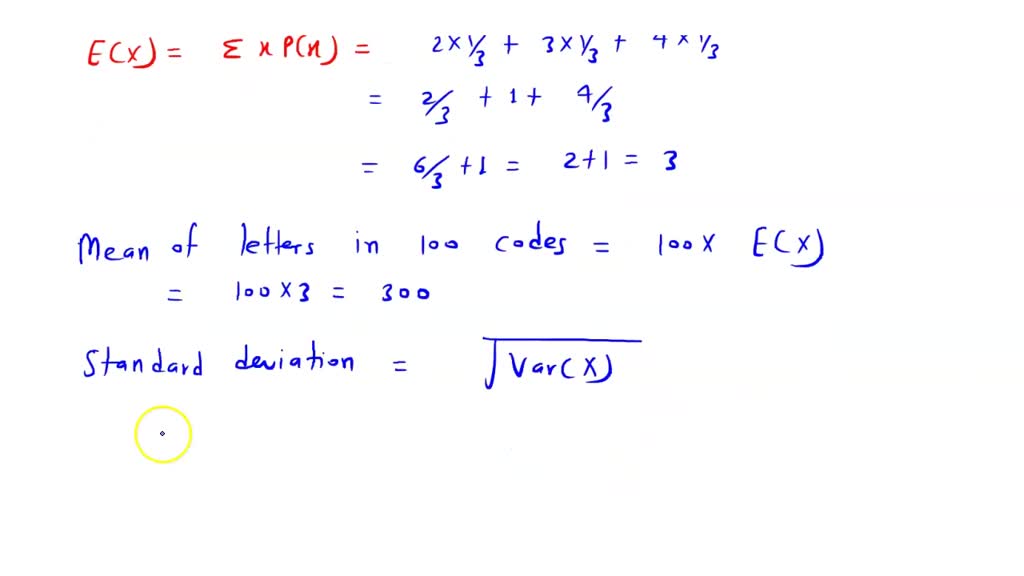 E(X) = Σ x P(x) = 2 × 1/3 + 3 × 1/3 + 4 × 1/3
= 2/3 + 1 + 4/3
= 6/3 + 1 = 2+1 = 3
Mean of letters in 100 codes = 100 X E(X)
= 100 × 3 = 300
Standard deviation = √Var(X)